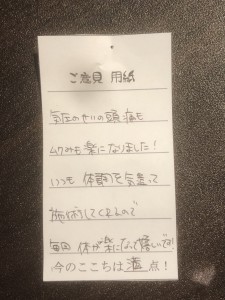 ご意見 用紙
気圧のせいの頭痛も
ムクみも楽になりました！
いつも 体調を気遣って
施術してくれるので
毎回 体が楽になって嬉しいです!
今のここちは 満 点！